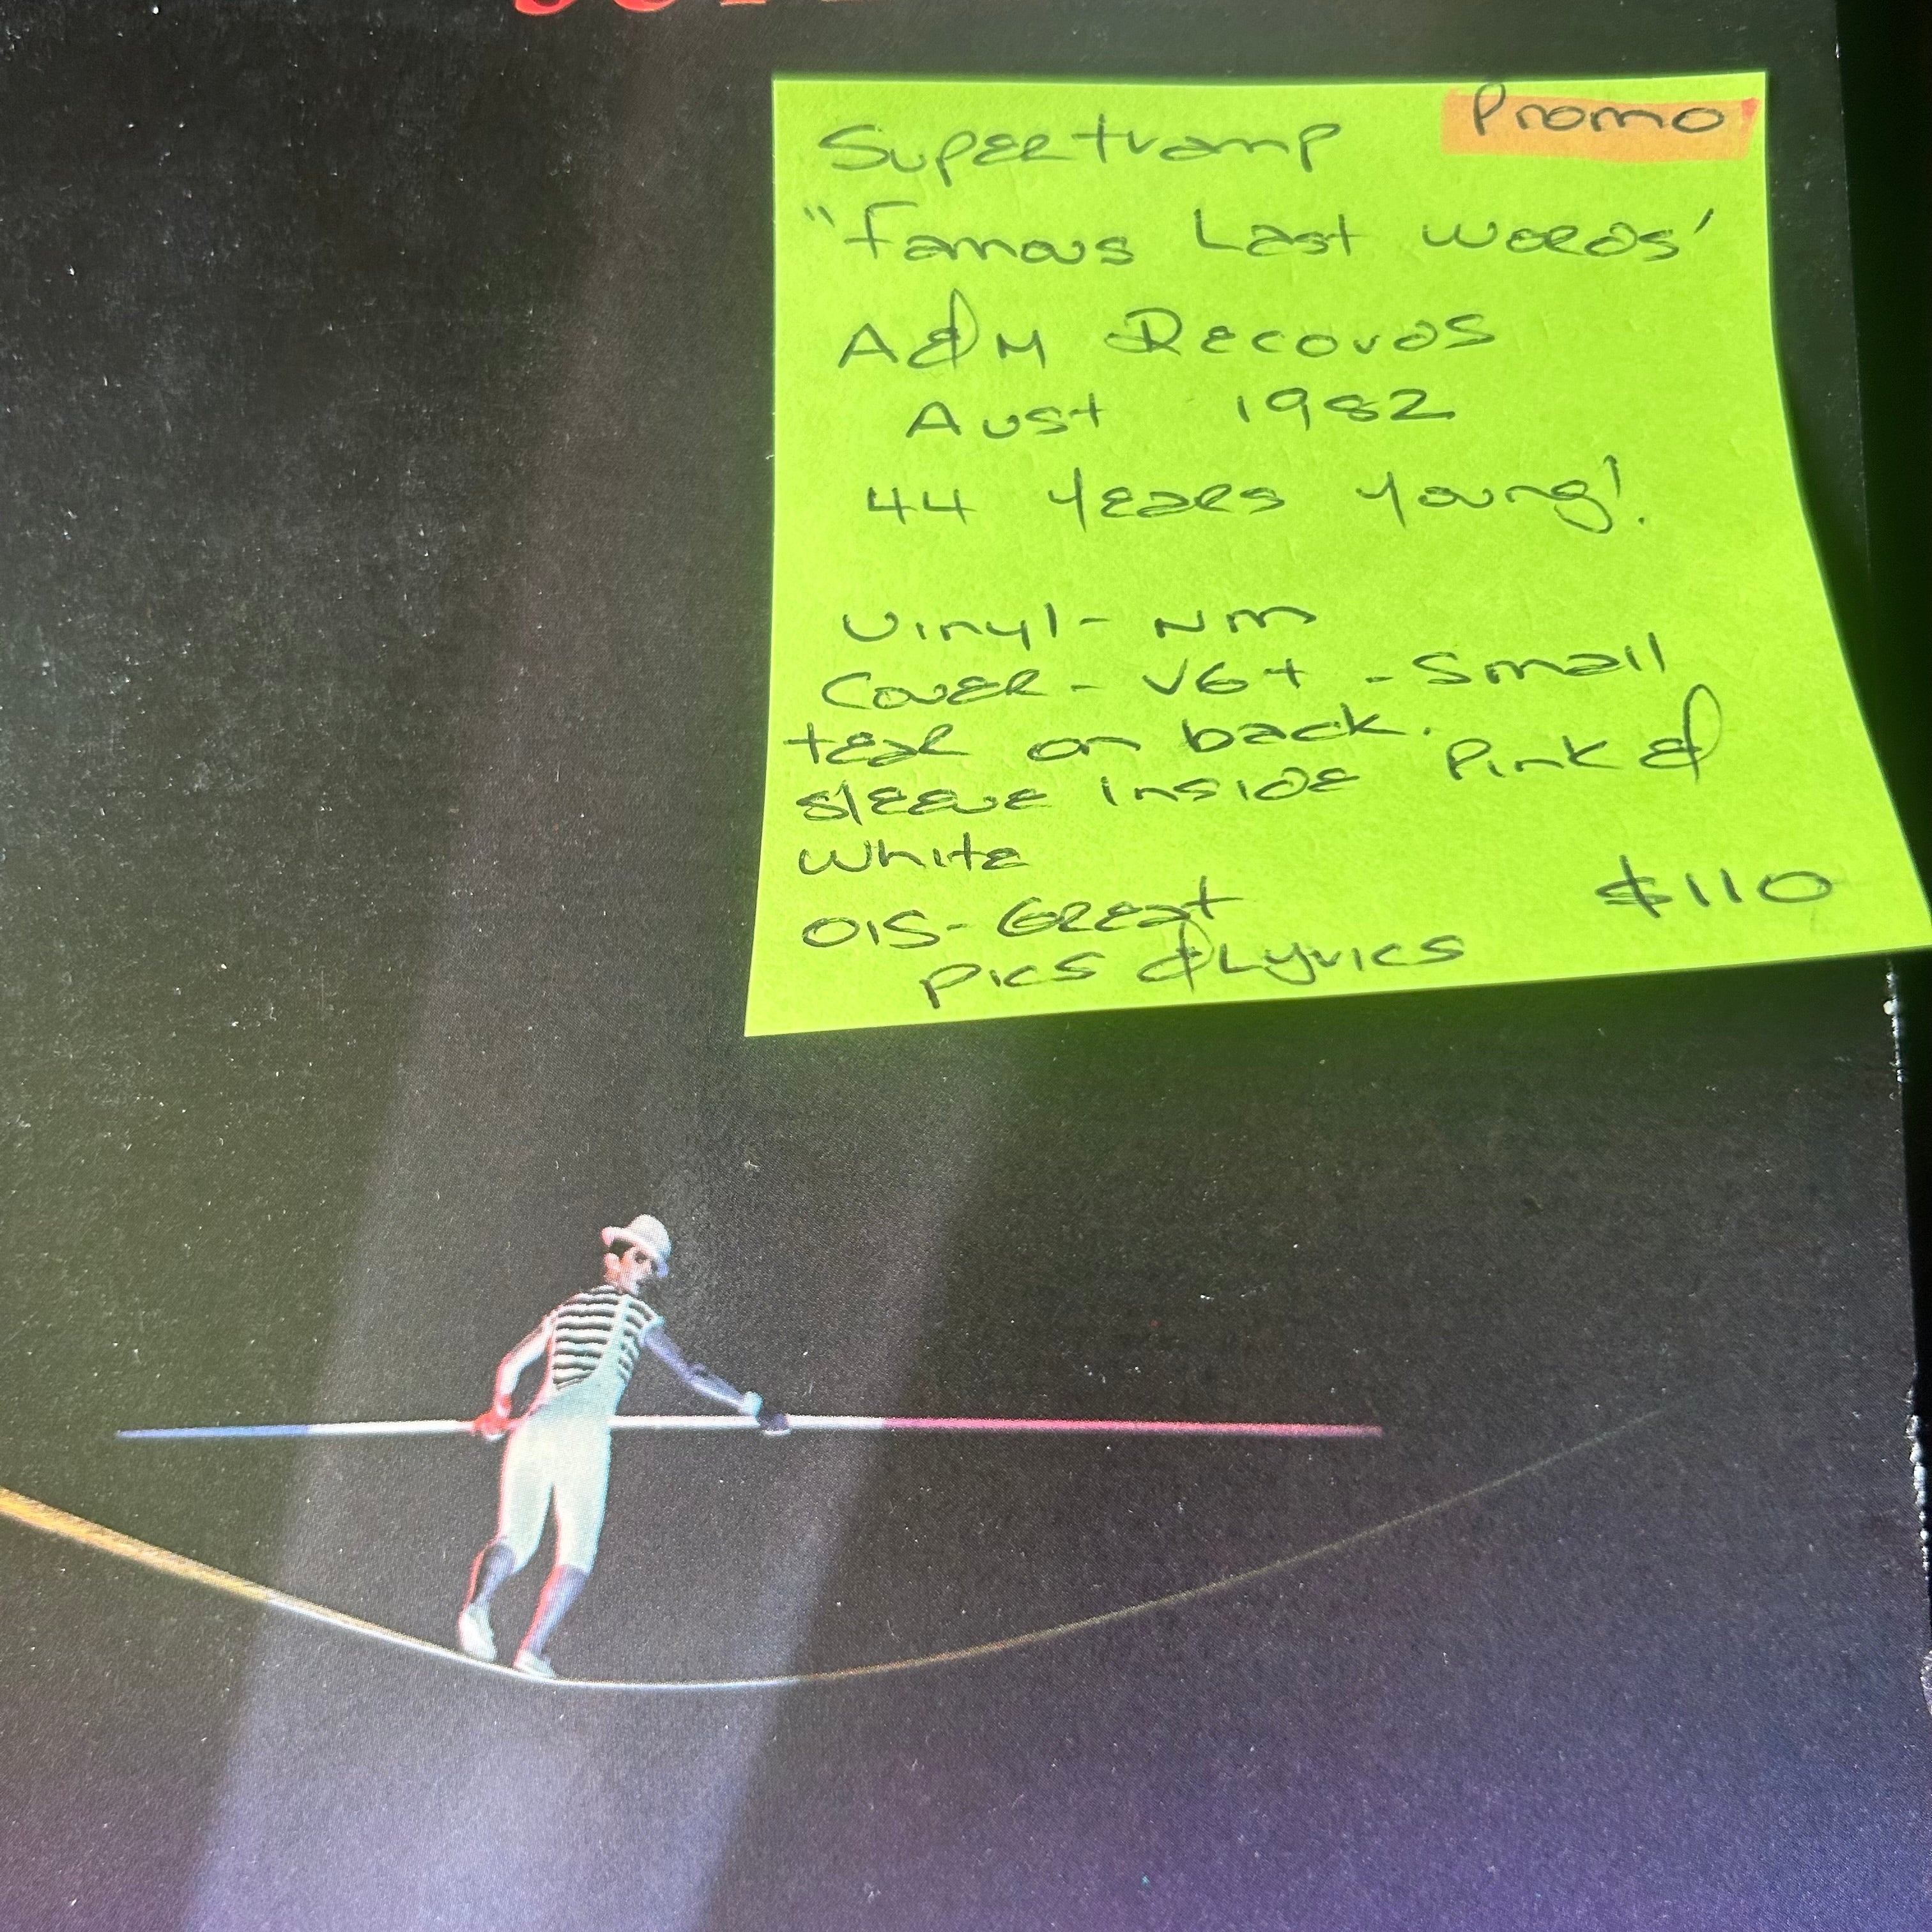 Promo
Supertramp
"Famous Last Words'
A & M Records
Aust 1982
44 Years Young!
Vinyl - NM
Cover - VG+ - Small
tear on back.
sleeve inside Pink &
White
OIS - Great
pics & Lyrics
$110